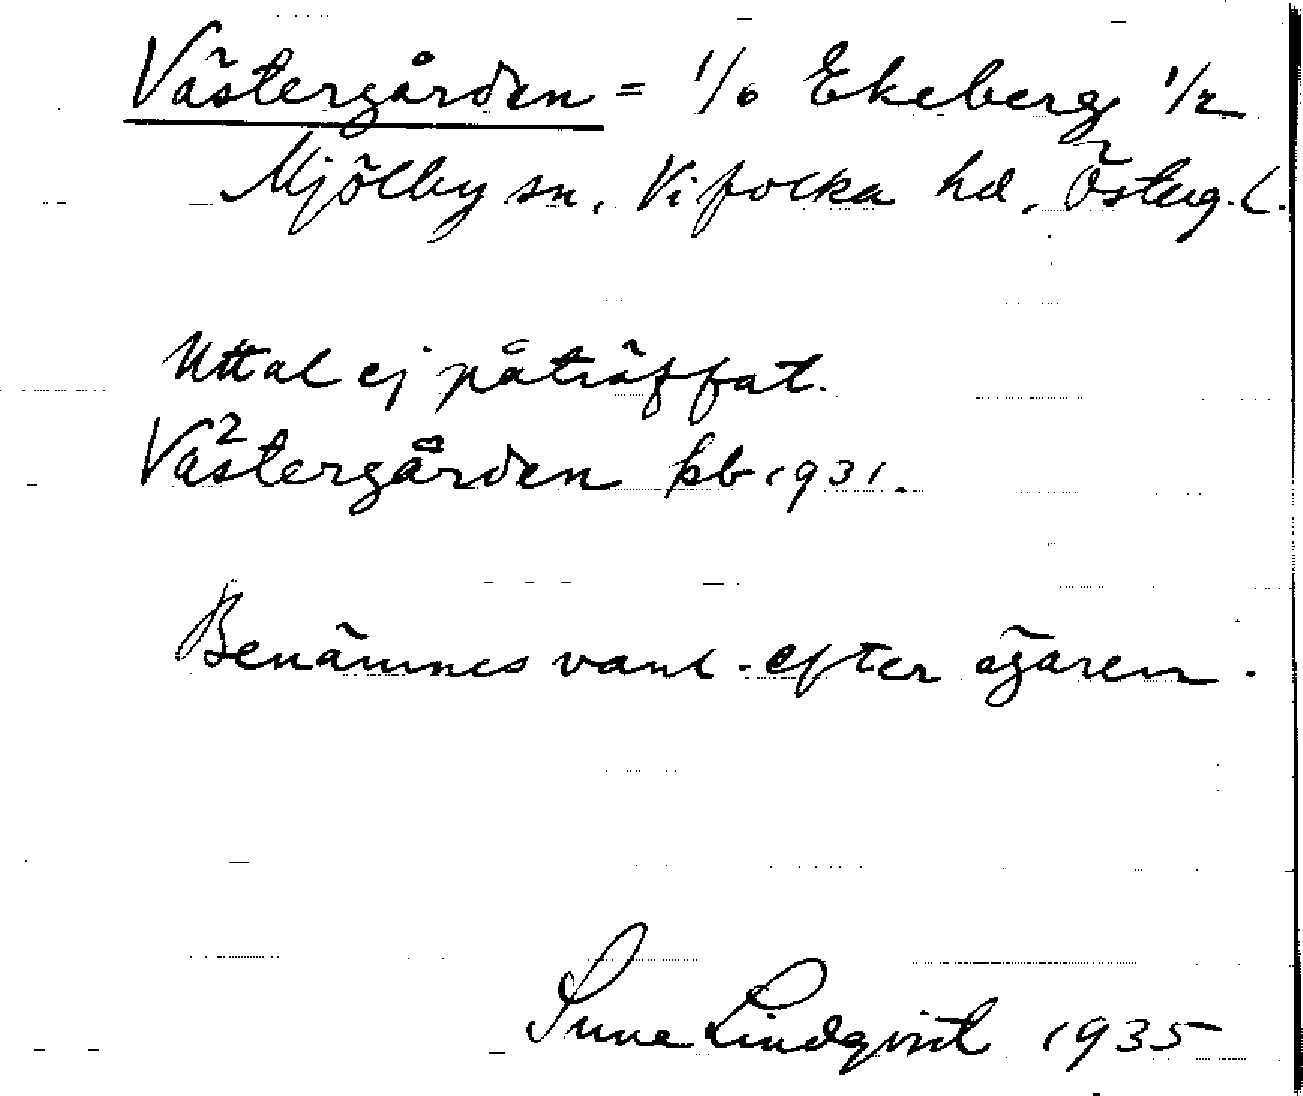 Västergården = 1/0 Ekeberg 1/2
Mjölby sn, Vifolka hd, Österg. l.
Uttal ej påträffat.
Västergården kb 1931.
Benämnes vanl. efter ägaren.
Sune Lindqvist 1935